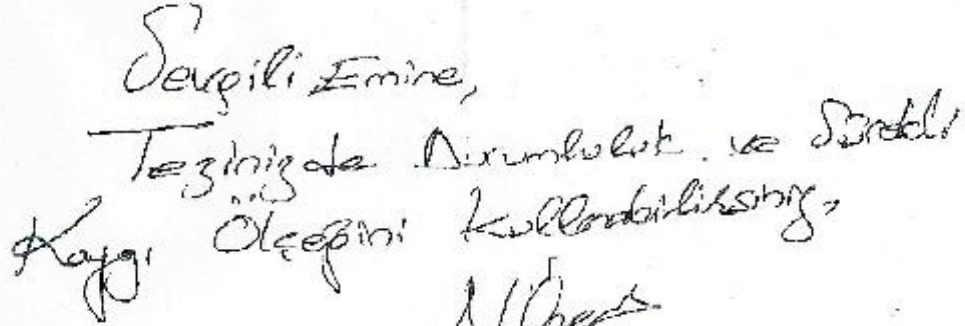 Sevgili Emine,
Tezinizde Durumluluk ve Sürekli
Kaygı Ölçeğini kullanabilirsiniz,
N. Öner